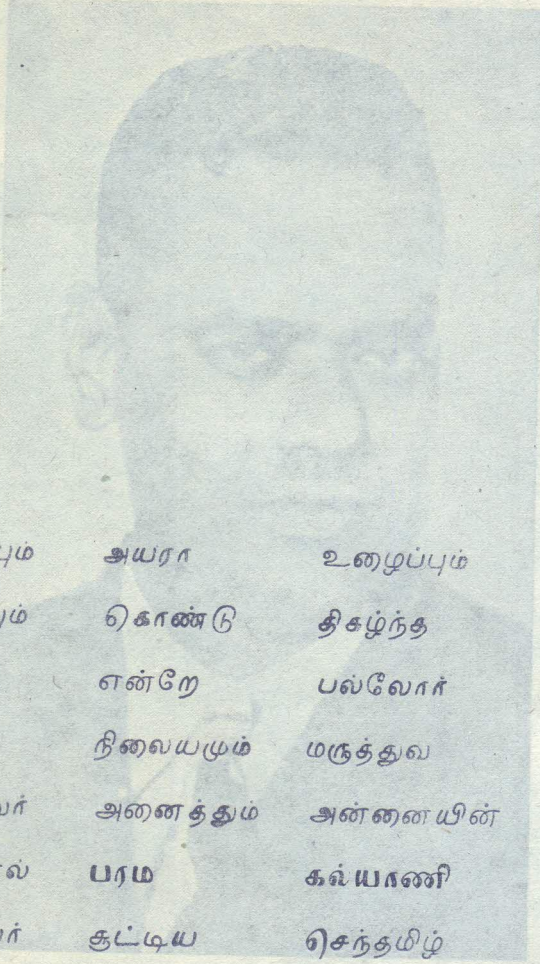 பும் அயரா உழைப்பும்
ும் கொண்டு திகழ்ந்த
என்றே பல்லோர்
நிலையமும் மருத்துவ
வர் அனைத்தும் அன்னையின்
ல் பரம கல்யாணி
ர் சூட்டிய செந்தமிழ்